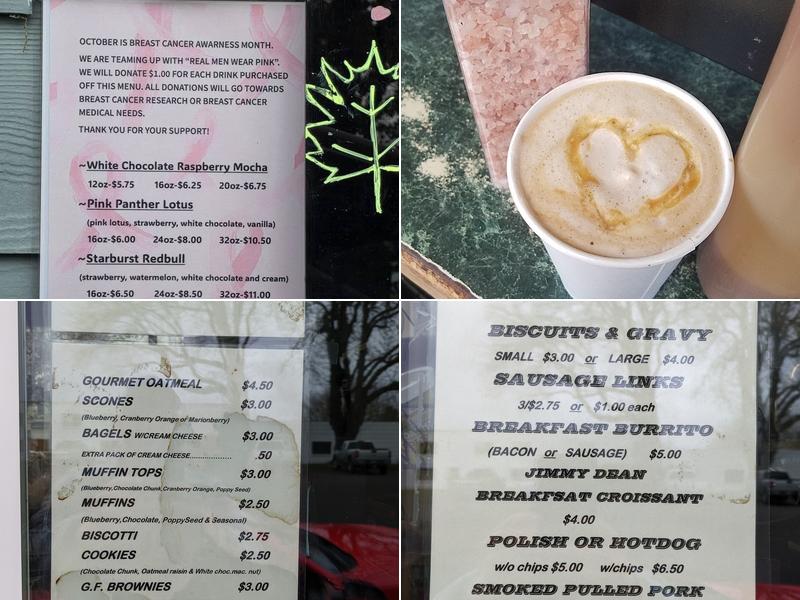 OCTOBER IS BREAST CANCER AWARNESS MONTH.
WE ARE TEAMING UP WITH "REAL MEN WEAR PINK".
WE WILL DONATE $1.00 FOR EACH DRINK PURCHASED
OFF THIS MENU. ALL DONATIONS WILL GO TOWARDS
BREAST CANCER RESEARCH OR BREAST CANCER
MEDICAL NEEDS.
THANK YOU FOR YOUR SUPPORT!
~White Chocolate Raspberry Mocha
12oz-$5.75 16oz-$6.25 20oz-$6.75
~Pink Panther Lotus
(pink lotus, strawberry, white chocolate, vanilla)
16oz-$6.00 24oz-$8.00 32oz-$10.50
~Starburst Redbull
(strawberry, watermelon, white chocolate and cream)
16oz-$6.50 24oz-$8.50 32oz-$11.00
GOURMET OATMEAL $4.50
SCONES $3.00
(Blueberry, Cranberry Orange or Marionberry)
BAGELS W/CREAM CHEESE $3.00
EXTRA PACK OF CREAM CHEESE.................... .50
MUFFIN TOPS $3.00
(Blueberry,Chocolate Chunk,Cranberry Orange, Poppy Seed)
MUFFINS $2.50
(Blueberry,Chocolate, PoppySeed & Seasonal)
BISCOTTI $2.75
COOKIES $2.50
(Chocolate Chunk, Oatmeal raisin & White choc.mac. nut)
G.F. BROWNIES $3.00
BISCUITS & GRAVY
SMALL $3.00 or LARGE $4.00
SAUSAGE LINKS
3/$2.75 or $1.00 each
BREAKFAST BURRITO
(BACON or SAUSAGE) $5.00
JIMMY DEAN
BREAKFSAT CROISSANT
$4.00
POLISH OR HOTDOG
w/o chips $5.00 w/chips $6.50
SMOKED PULLED PORK